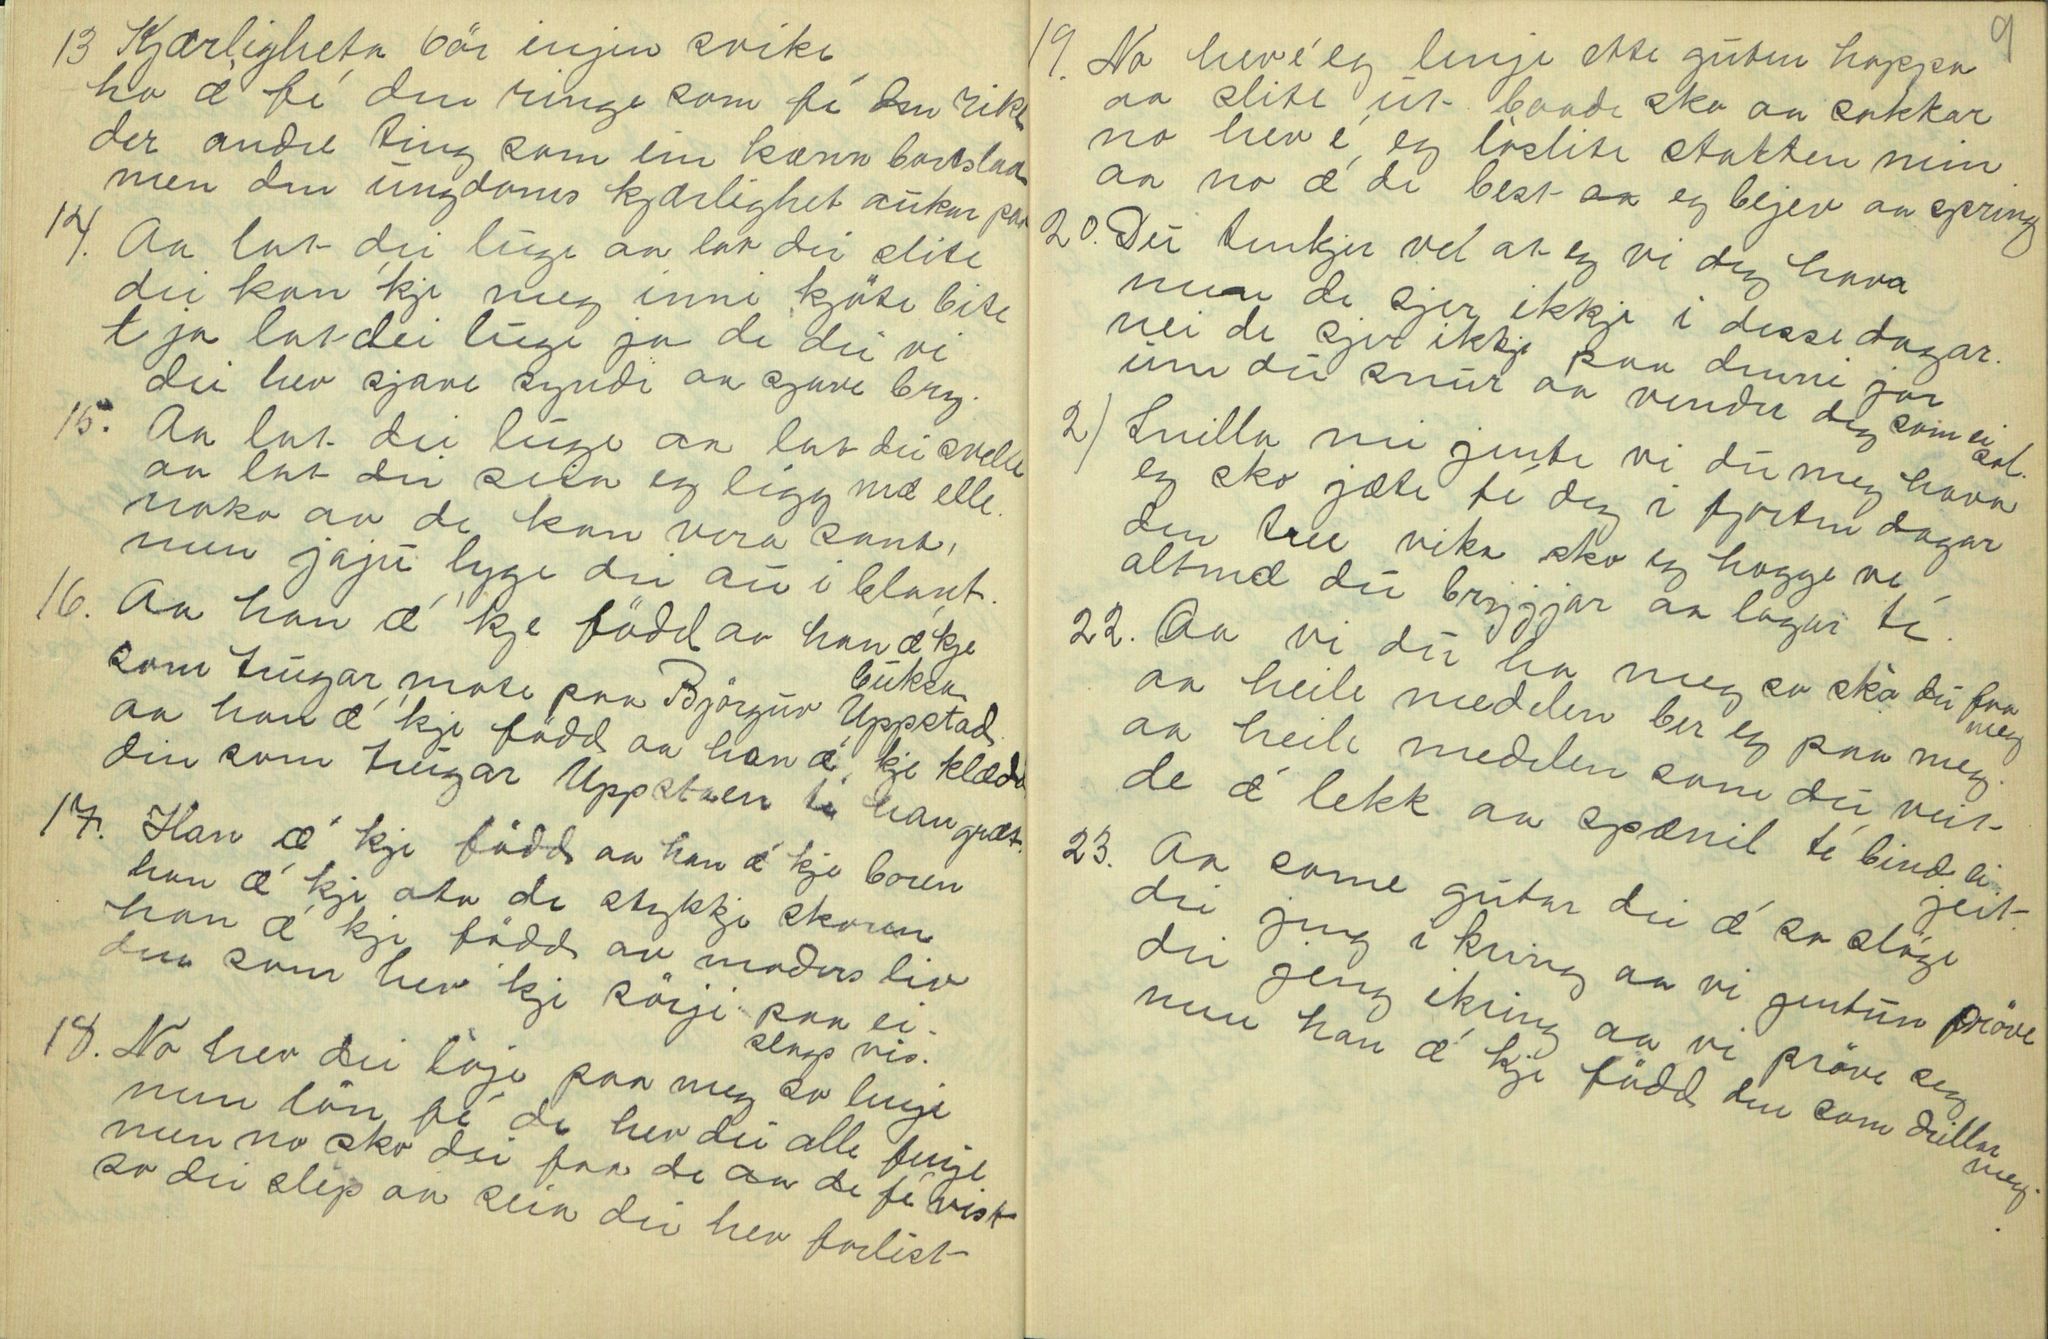 13 Kjærligheta bör injen svike
ho æ' fé den ringe som fé den rike
der andre ting som ein kann bortslaa
men den ungdoms kjærlighet aukar paa
14. Aa lat dei luge aa lat dei slite
dei kan 'kje meg inni kjöte bite
t ja lat dei luge ja de dei vi
dei hev sjave syndi aa sjave bry.
15. Aa lat dei luge aa lat dei svelle
aa lat dei seia eg ligg mæ elle.
noko av de kan vera sant,
men jaju lyge dei au i blant.
16. Aa han æ' kje född aa han æ'kje
buksa
som trugar mote paa Björguv Uppstad
aa han æ' kje född aa han æ' kje klædd
din som trugar Uppstaen te han græt.
17. Han æ' kje född aa han æ' kje boren
han æ' kje ata de stykkje skoren
han æ' kje född av moders liv
den som hev 'kje sörji paa ei
slags vis.
18. No hev dei löje paa meg so lengje
men lön fé de hev dei alle fengje
men no sko dei faa de aa de fé vist
so dei slep aa seia dei hev forlist
9
19. No hev é eg lenje ette guten hoppa
aa slite ut baade sko aa sokkar
no hev é eg löslite stakken min
aa no æ' de best aa eg bejev aa spring
20. Du tenkjer vel at eg vi deg hava
men de sjer ikkje i desse dagar.
nei de sjer ikkje paa denni jor
um du snur aa vender deg som ei
sol.
21 Snilla mi jente vi du meg hava
eg sko jæte té deg i fjorten dagar
den tree vika sko eg hogge ve
altmæ du bryggjar aa lagar té.
22. Aa vi du ha meg so ska du faa
meg
aa heile medelen ber eg paa meg.
aa heile medelen som du veit
de æ' lekk aa spænil té bind ei
jeit.
23. Aa some gutar dei æ' so slöge
dei jeng i kring aa vi jentun pröve
dei jeng ikring aa vi pröve seg
men han æ' kje född den som drillar
meg.